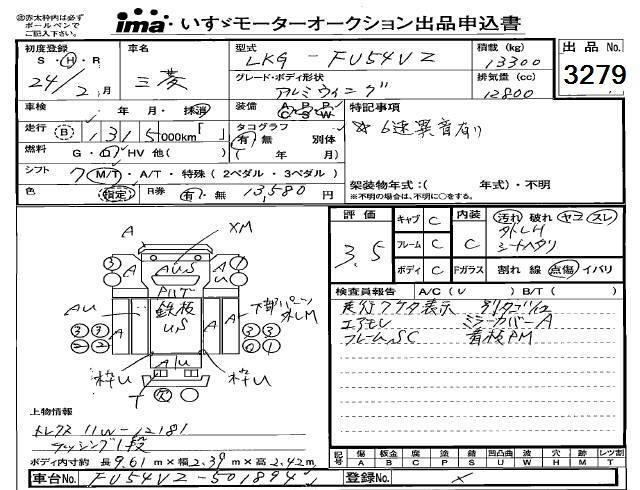 ㊟赤太枠内は必ず
ボールペンで
ご記入下さい。
ima いすゞモーターオークション出品申込書
初度登録 車名 型式 積載 (kg) 出品 No.
S・H・R 三菱 LKG - FU54VZ 13300
24/2月 グレード・ボディ形状 排気量 (cc) 3279
アルミウィング 12800
車検 年 月・抹消 装備 A/C P/S P/W 特記事項
走行 B 1315,000km「 」 タコグラフ ☆6速異音有り
有・無 別体
燃料 G・D HV 他( ) ( 年 月)
シフト 7 M/T・A/T・特殊(2ペダル・3ペダル) 架装物年式:( 年式)・不明
色 (指定) R券 有・無 13,580円 ※不明の場合は、不明に○をする。
評価 キャブ C 内装 汚れ 破れ ヤコ スレ
3.5 外LH
フレーム C C シートヘタリ
ボディ C Fガラス 割れ 線 点傷 イバリ
検査員報告 A/C(V ) B/T( )
ミラーカバーA
フレームSC 着板PM
A XM
A AUS A
AU 鉄板 US 下部パーツ 外LM
A A A A
枠U A/U 枠U
上物情報
トレクス 11W-12181
ラッシング1段
ボディ内寸約 長9.61m×幅2.39m×高2.42m
記号 傷 板金 腐 塗 錆 凹凸曲 波 穴 跡 レツ割
A B C P S U W H M T
車台No. FU54VZ-501894 登録No. ×